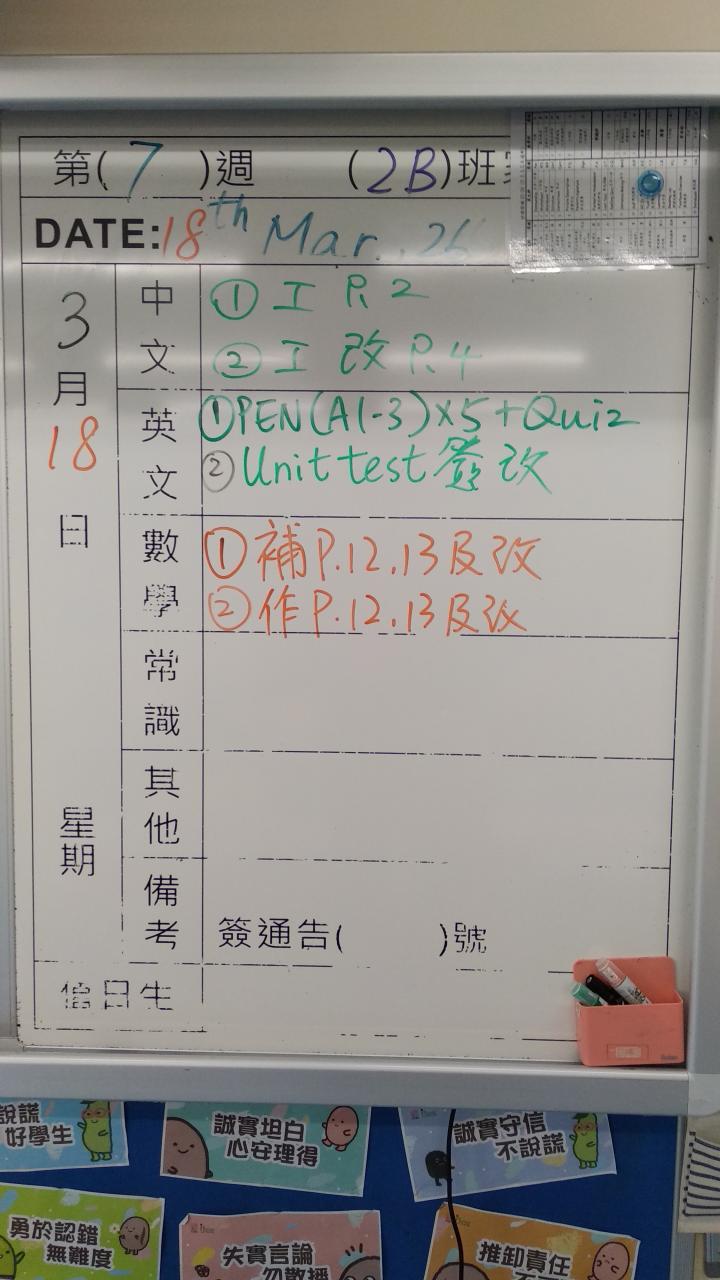 第(7)週 (2B)班
DATE:18th Mar. 26
3月18日
星期
中文
① 工 P.2
② 工 改 P.4
英文
① PEN(A1-3)×5+Quiz
② Unit test 簽改
數學
① 補 P.12,13及改
② 作 P.12,13及改
常識
其他
備考
簽通告( )號
值日生
說謊
好學生
誠實坦白
心安理得
誠實守信
不說謊
勇於認錯
無難度
失實言論
勿散播
推卸責任